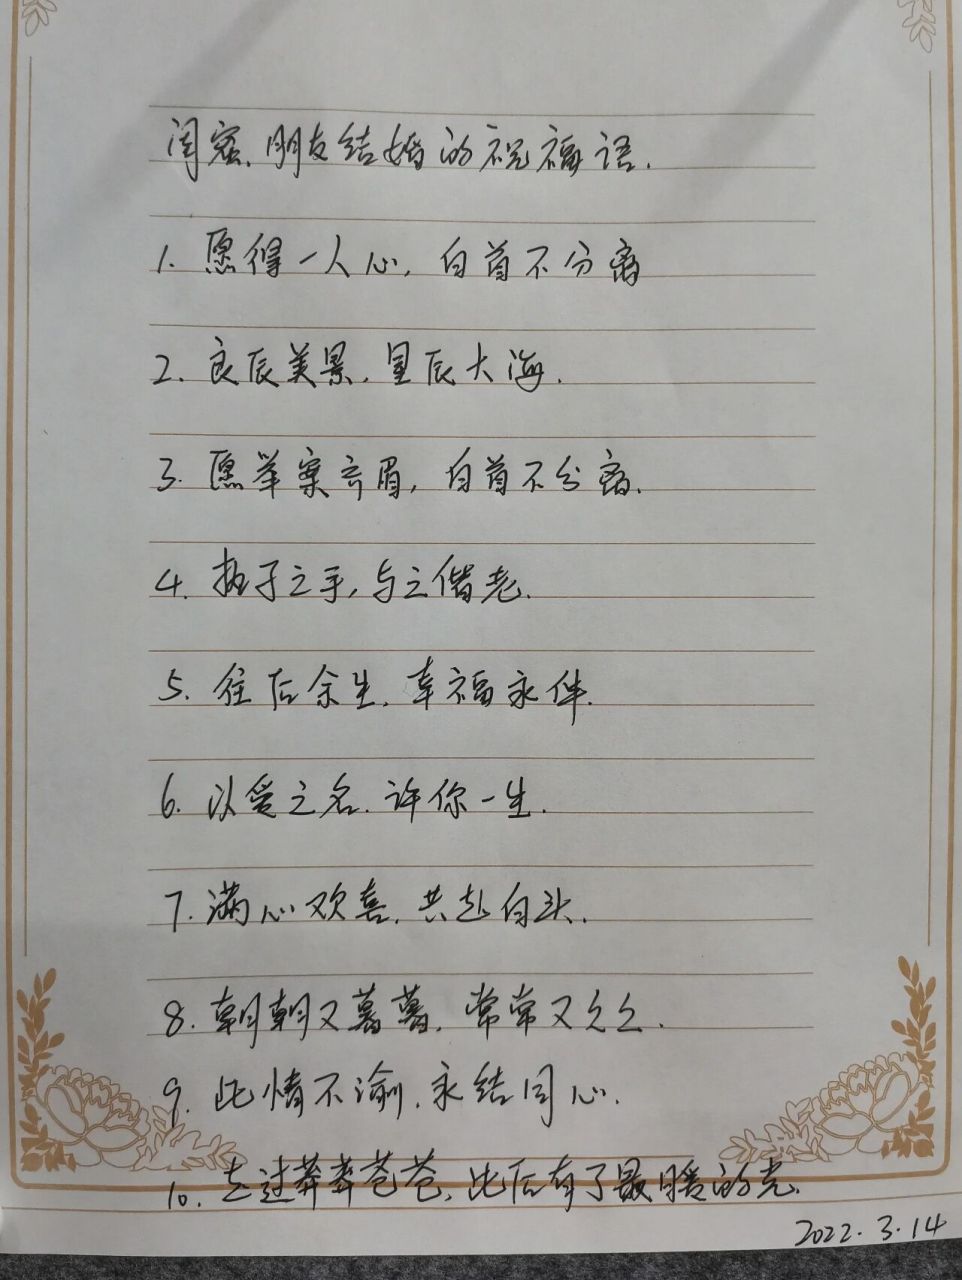 闺蜜、朋友结婚的祝福语.
1. 愿得一人心, 白首不分离
2. 良辰美景, 星辰大海.
3. 愿举案齐眉, 白首不分离.
4. 执子之手, 与之偕老.
5. 往后余生, 幸福永伴.
6. 以爱之名, 许你一生.
7. 满心欢喜, 共赴白头.
8. 朝朝又暮暮, 常常又久久.
9. 此情不渝, 永结同心.
10. 走过莽莽苍苍, 此后有了最暖的光.
2022.3.14